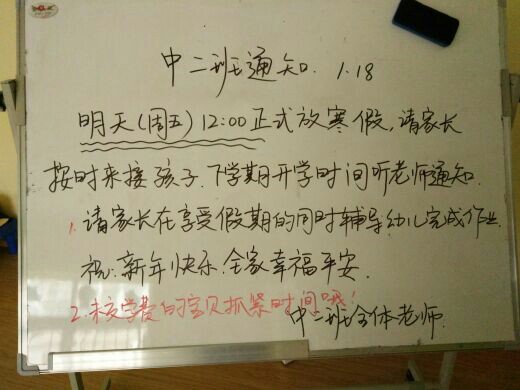 中二班通知. 1.18
明天(周五)12:00正式放寒假,请家长
按时来接孩子.下学期开学时间听老师通知.
1.请家长在享受假期的同时辅导幼儿完成作业.
祝:新年快乐.全家幸福平安.
2.未交学费的宝贝抓紧时间哦!
中二班全体老师.